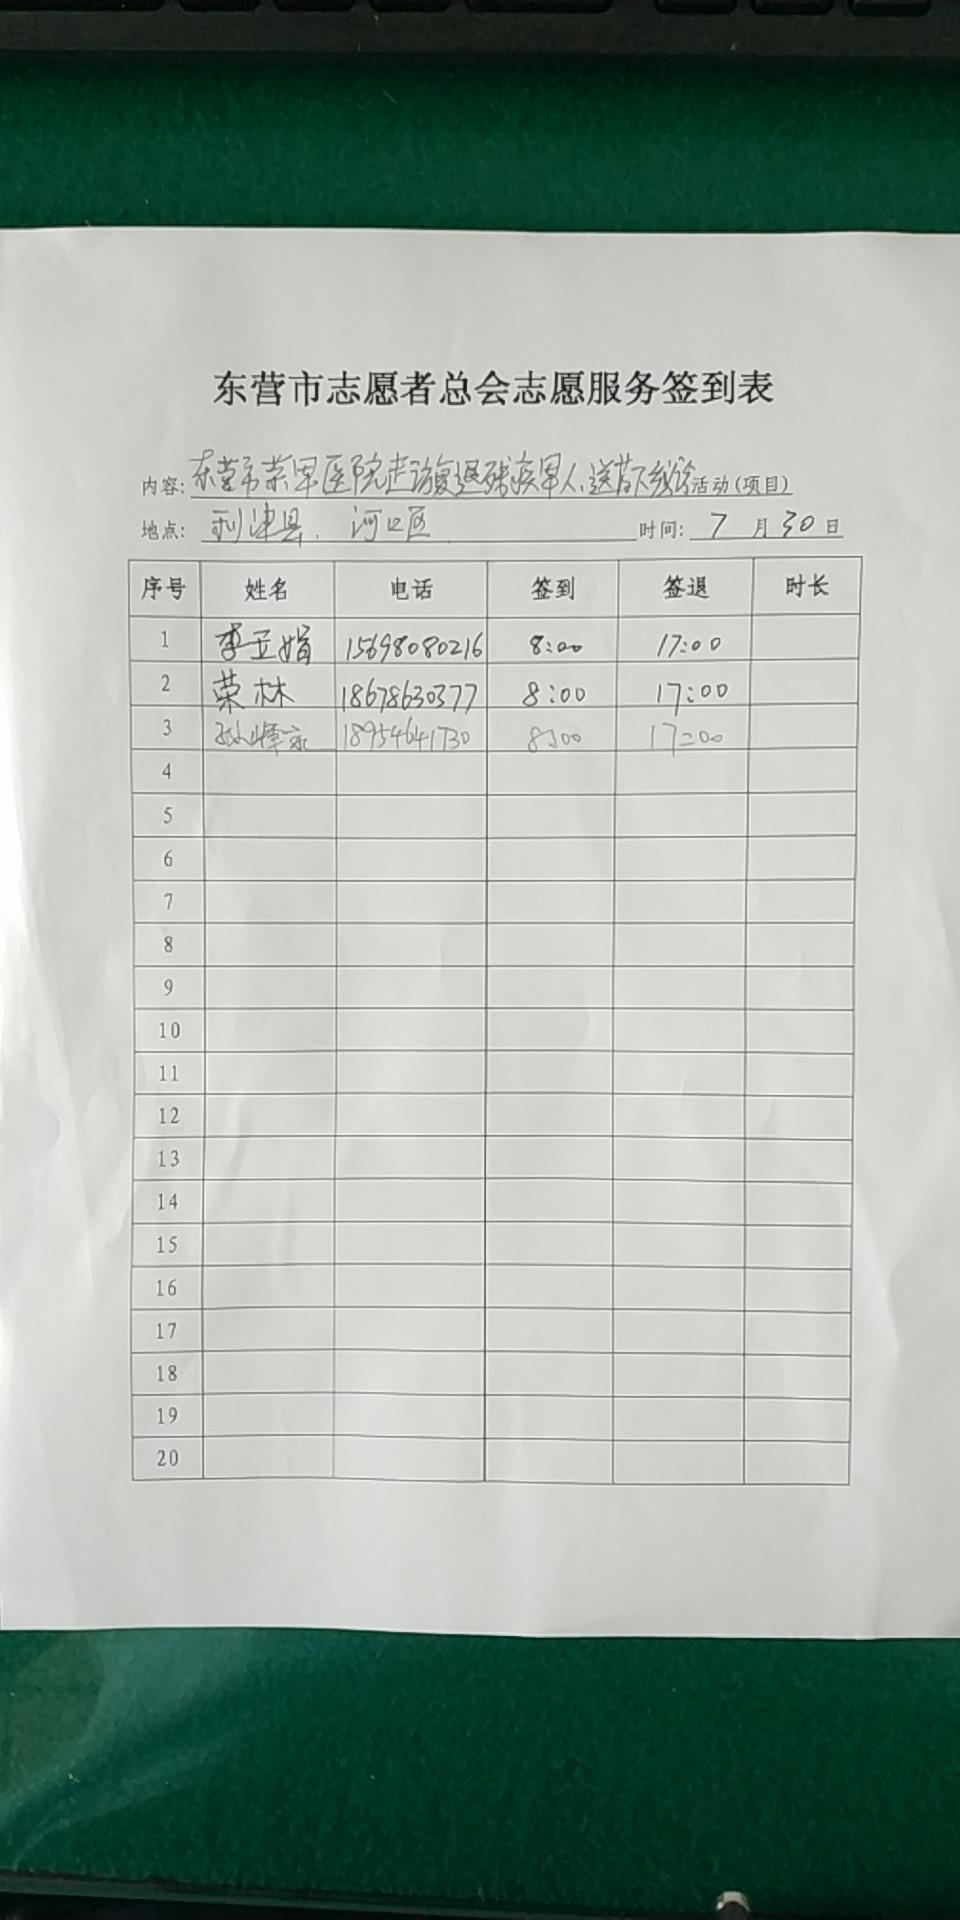 东营市志愿者总会志愿服务签到表
内容: 东营市荣军医院走访复退残疾军人、送药下线 活动(项目)
地点: 利津县、河口区 时间: 7 月 30 日
序号 姓名 电话 签到 签退 时长
1 李亚娟 15698080216 8:00 17:00
2 荣林 18678630377 8:00 17:00
3 孙 18954641730 8:00 17:00
4
5
6
7
8
9
10
11
12
13
14
15
16
17
18
19
20